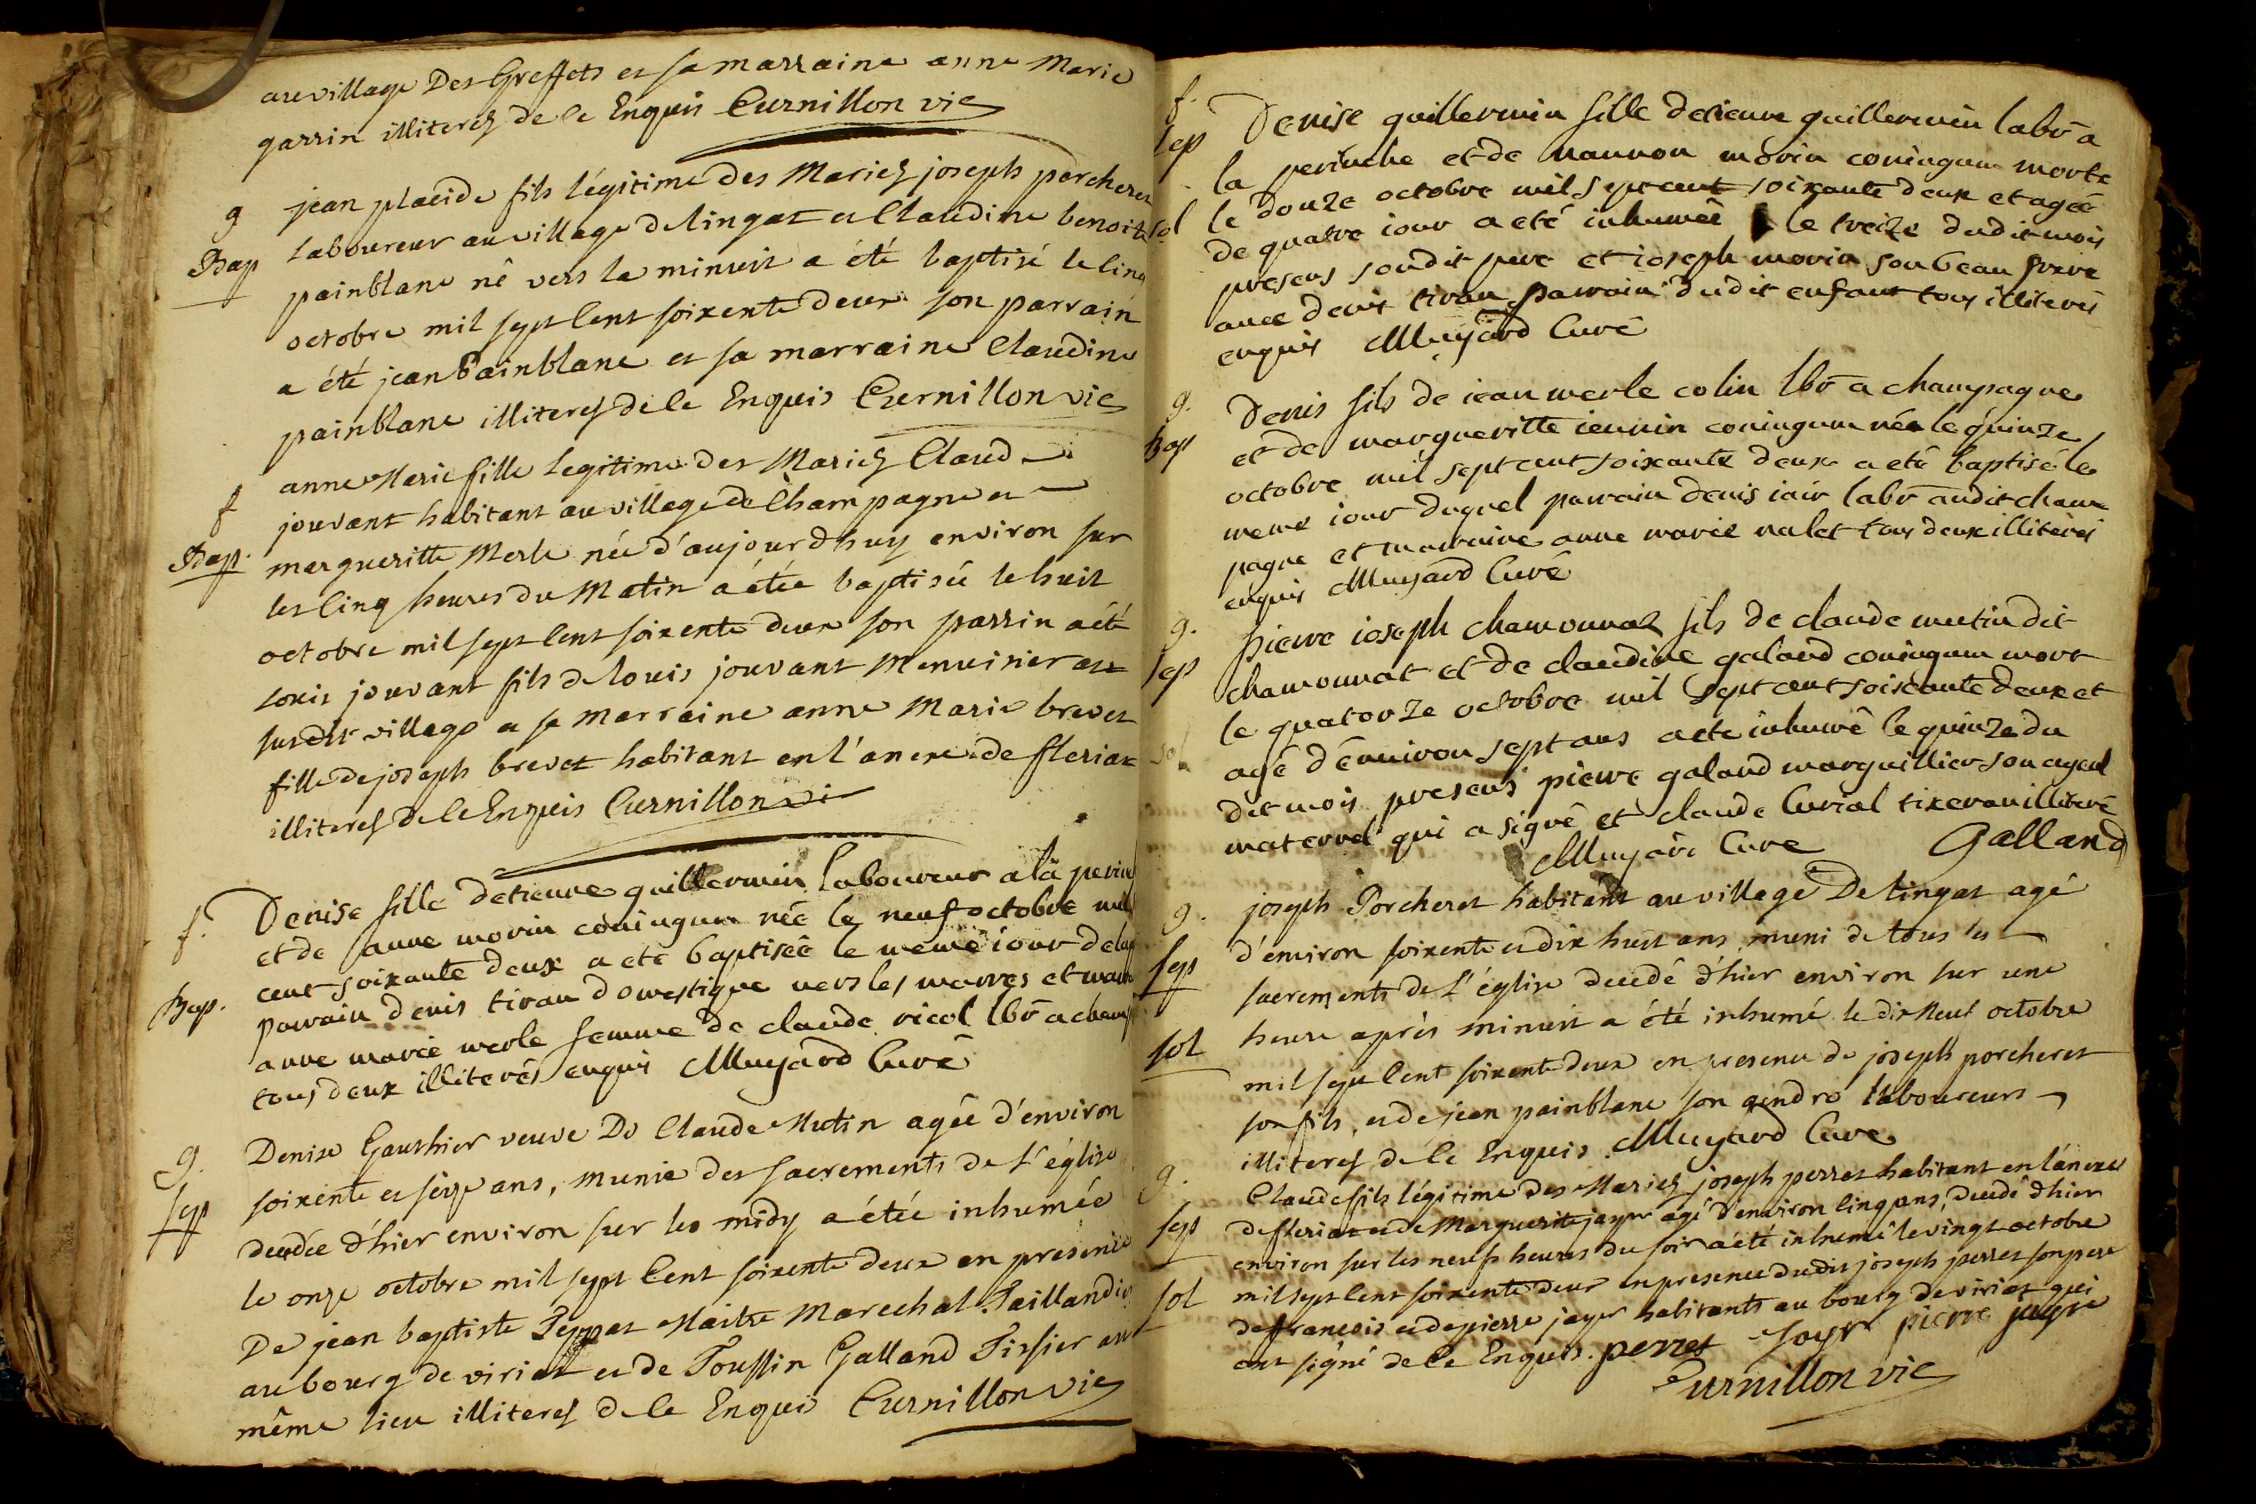 au village Des Greffets et sa marraine anne Marie
garrin illiteres de ce Enquis Curnillon vic
g
Bap
jean placide fils légitime des Mariez joseph porcheret
Laboureur au village de lingat et Claudine benoite
painblanc né vers la minuit a été baptisé le cinq
octobre mil sept Cent soixente deux son parrain
a été jean Painblanc et sa marraine Claudine
painblanc illiteres de ce Enquis Curnillon vic
f
Bap.
anne Marie fille legitime des Mariez Claude
jouvant habitant au village de Champagne et
margueritte Merle née d'aujourdhuy environ sur
les Cinq heures du Matin a étée baptisée le huit
octobre mil sept Cent soixente deux son parrin a été
Louis jouvant fils de louis jouvant Menuisier au
susdit village et sa Marraine anne Marie brevet
fille de joseph brevet habitant en l'anexe de fleriat
illiteres de ce Enquis Curnillon vic
f.
Bap.
Denise fille detienne guillermin Laboureur a la perin
et de anne morin coniugum née le neuf octobre mil
cent soixante deux a eté baptiseé le meme iour
parrain denis tiran domestique vers les marres et
anne marie merle femme de claude vicol lbr a champ
tous deux illiterés enquis Mugard Curé
g.
sep
Denise Gauthier veuve De Claude Mutin agée d'environ
soixente et seize ans, munie des sacrements de L'église
decedée d'hier environ sur les midy a étée inhumée
le onze octobre mil sept Cent soixente deux en presence
De jean baptiste Peppet Maitre Marechal Taillandier
au bourg de viriat et de Toussin Galland Tissier au
même lieu illiteres de ce Enquis Curnillon vic
f.
sep
sol
Denise guillermin fille detienne guillermin labr a
la perinche et de nannon morin coniugum morte
le douze octobre mil sept cent soixante deux et ageé
de quatre iour a eté inhumeé le treize dudit mois
presens soudit pere et ioseph morin son beau frere
avec denis tiran parrain dudit enfant tous illiterés
enquis Mugard Curé
g.
bap
Denis fils de iean merle colin lbr a champagne
et de margueritte iennin coniugum née le quinze
octobre mil sept cent soixante deux a eté baptisé le
meme iour duquel parrain denis iair labr audit cham
pagne et marraine anne marie nalet tous deux illiterés
enquis Mugard Curé
g.
sep
sol
pierre ioseph chamonnat fils de claude mutin dit
chamonnat et de claudine galand coniugum mort
le quatorze octobre mil sept cent soixante deux et
agé d'environ sept ans a eté inhumé le quinze du
dit mois presens pierre galand marguillier son ayeul
maternel qui a signé et claude Curial tixeran illiteré
Mugard Cure Galland
g.
sep
sol
joseph Porcheret habitant au village De lingat agé
d'environ soixente et dix huit ans muni de tous les
sacrements de L'église decedé d'hier environ sur une
heure après minuit a été inhumé le dix neuf octobre
mil sept Cent soixente deux en presence de joseph porcheret
son fils, et de jean painblanc son gendre laboureurs
illiteres de ce Enquis. Mugard Cure
g.
sep
sol
Claude fils légitime des Mariez joseph perret habitant en l'anexe
de fleriat et de Marguerite jayr agé d'environ cinq ans, decedé d'hier
environ sur les neufs heures du soir a été inhumé le vingt octobre
mil sept Cent soixente deux en presence dudit joseph perret son pere
de francois et de pierre jayr habitants au bourg de viriat qui
ont signé de ce Enquis. perret Jayr pierre jayre
Curnillon vic